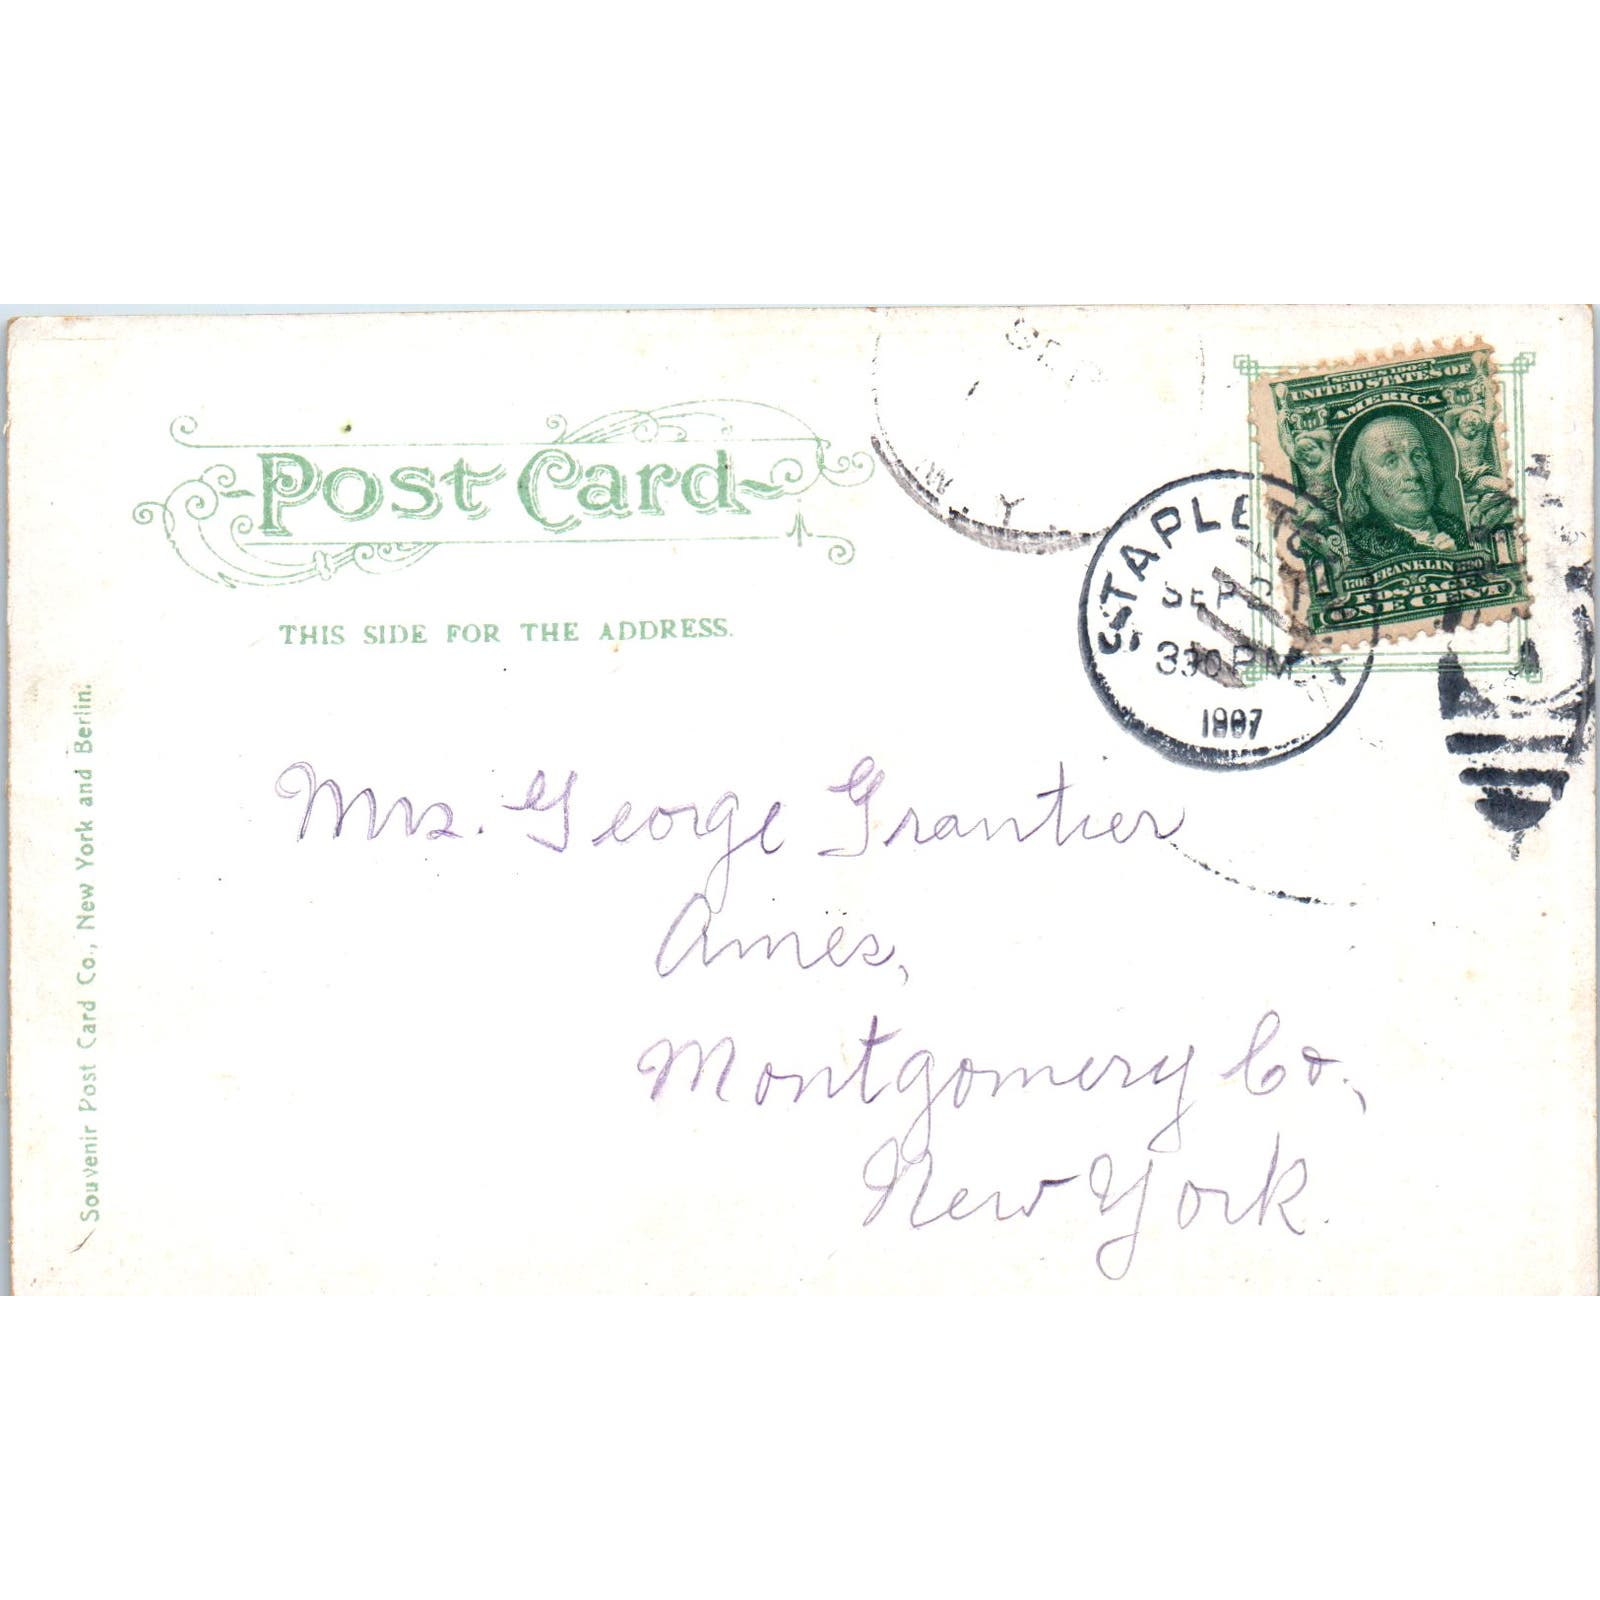 Post Card
THIS SIDE FOR THE ADDRESS.
SEP
N.Y.
STAPLETON
SEP 2
330 PM
N.Y.
1907
SERIES 1902
UNITED STATES OF
AMERICA
1706 FRANKLIN 1790
POSTAGE
1 1
ONE CENT
Mrs. George Grantier
Ames,
Montgomery Co.,
New York.
Souvenir Post Card Co., New York and Berlin.